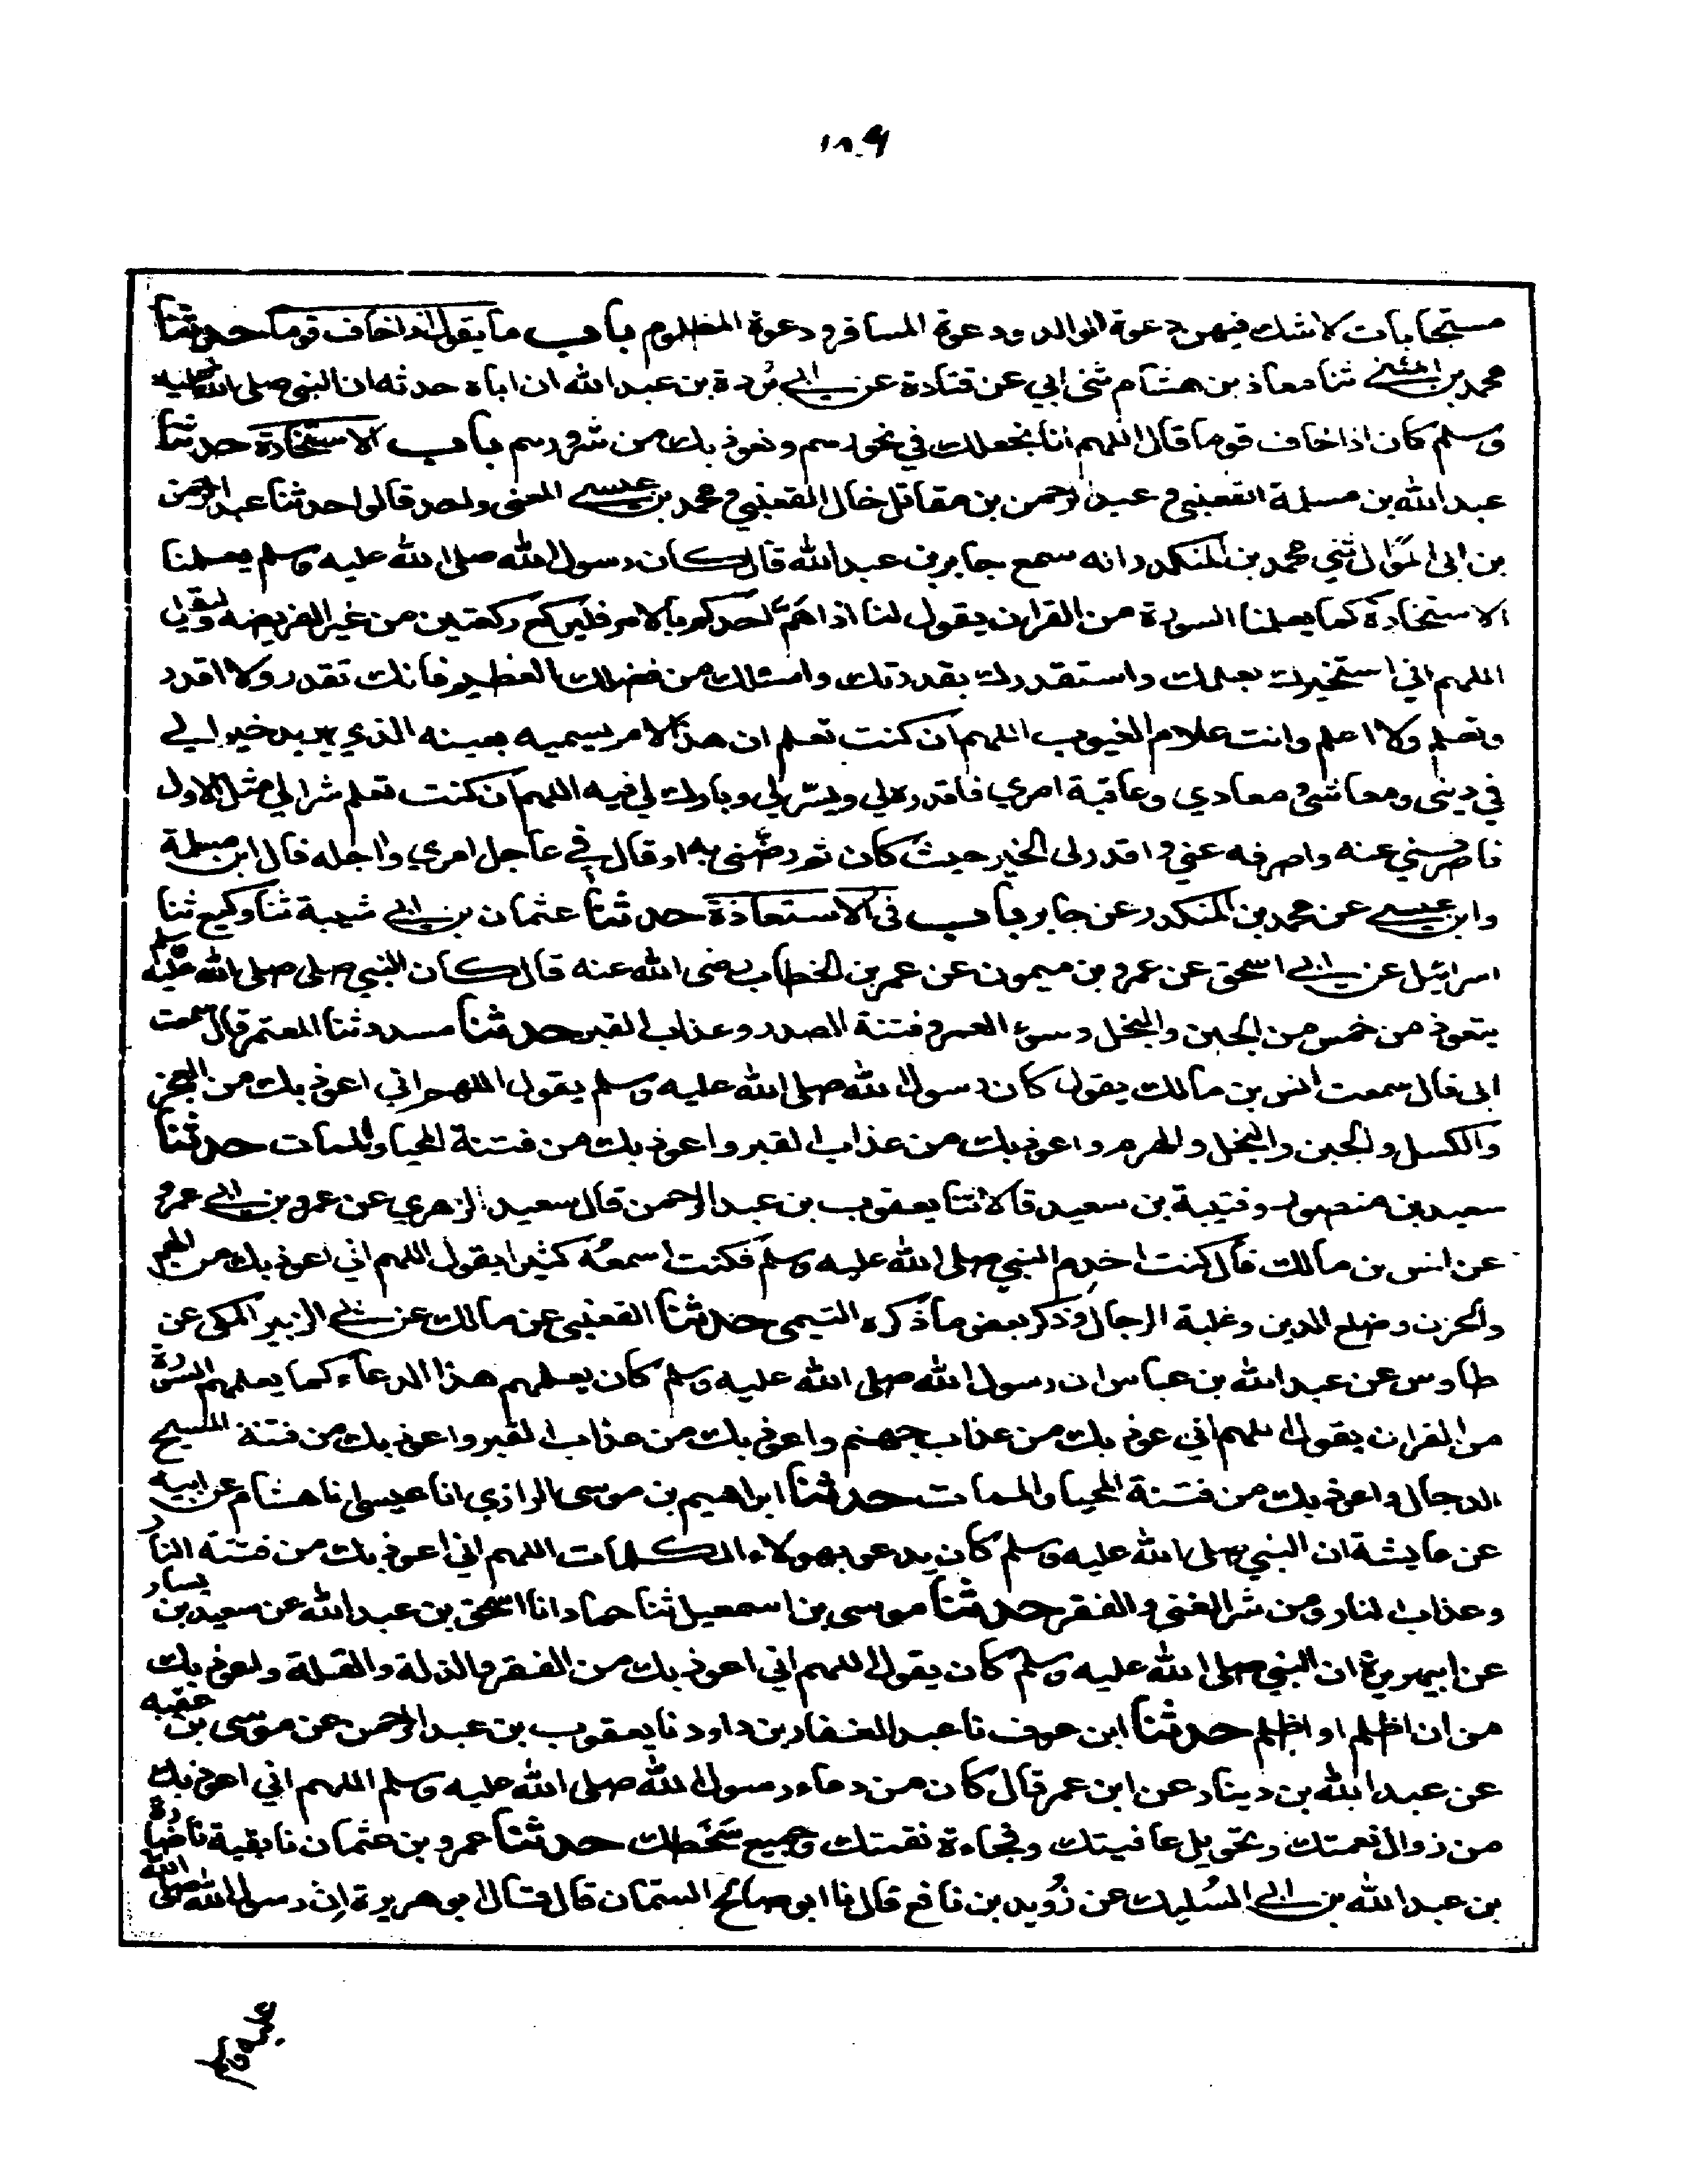 ١٨٩
مستجابات لا شك فيهن دعوة الوالد ودعوة المسافر ودعوة المظلوم باب ما يقول اذا خاف قوما حدثنا
محمد بن المثنى ثنا معاذ بن هشام ثنى ابي عن قتادة عن ابي بُردة بن عبد الله ان اباه حدثه ان النبي صلى الله عليه
وسلم كان اذا خاف قوما قال اللهم انا نجعلك في نحورهم ونعوذ بك من شرورهم باب الاستخارة حدثنا
عبد الله بن مسلمة القعنبي وعبد الرحمن بن مقاتل خال القعنبي ومحمد بن عيسى المعنى واحد قالوا حدثنا عبد الرحمن
بن ابى الموَّال ثني محمد بن المنكدر انه سمع جابر بن عبد الله قال كان رسول الله صلى الله عليه وسلم يعلمنا
الاستخارة كما يعلمنا السورة من القران يقول لنا اذا همَّ احدكم بالامر فليركع ركعتين من غير الفريضه وليقل
اللهم اني استخيرك بعلمك واستقدرك بقدرتك واسئلك من فضلك العظيم فانك تقدر ولا اقدر
وتعلم ولا اعلم وانت علام الغيوب اللهم ان كنت تعلم ان هذا الامر يسميه بعينه الذي يريد خير لي
في ديني ومعاشي ومعادي وعاقبة امري فاقدره لي ويسّره لي وبارك لي فيه اللهم ان كنت تعلم شرا لي مثل الاول
فاصرفني عنه واصرفه عني واقدر لى الخير حيث كان ثم رضّنى به او قال في عاجل امري واجله قال ابن مسلمة
وابن عيسى عن محمد بن المنكدر عن جابر باب في الاستعاذة حدثنا عثمان بن ابي شيبة ثنا وكيع ثنا
اسرائيل عن ابي اسحق عن عمرو بن ميمون عن عمر بن الخطاب رضى الله عنه قال كان النبي صلى صلى الله عليه وسلم
يتعوذ من خمس من الجبن والبخل وسوء العمر وفتنة الصدر وعذاب القبر حدثنا مسدد ثنا المعتمر قال سمعت
ابى قال سمعت انس بن مالك يقول كان رسول الله صلى الله عليه وسلم يقول اللهم اني اعوذ بك من العجز
والكسل والجبن والبخل والهرم واعوذ بك من عذاب القبر واعوذ بك من فتنة المحيا والممات حدثنا
سعيد بن منصور وقتيبة بن سعيد قالا ثنا يعقوب بن عبد الرحمن قال سعيد الزهري عن عمرو بن ابي عمرو
عن انس بن مالك قال كنت اخدم النبي صلى الله عليه وسلم فكنت اسمعُه كثيرا يقول اللهم اني اعوذ بك من الهم
والحزن وضلع الدين وغلبة الرجال وذكر بعض ما ذكره التيمى حدثنا القعنبى عن مالك عن ابي الزبير المكى عن
طاوس عن عبد الله بن عباس ان رسول الله صلى الله عليه وسلم كان يعلمهم هذا الدعاء كما يعلمهم السورة
من القران يقول اللهم اني اعوذ بك من عذاب جهنم واعوذ بك من عذاب القبر واعوذ بك من فتنة المسيح
الدجال واعوذ بك من فتنة المحيا والممات حدثنا ابراهيم بن موسى الرازي انا عيسى انا هشام عن ابيه
عن عايشة ان النبي صلى الله عليه وسلم كان يدعو بهولاء الكلمات اللهم اني اعوذ بك من فتنة النار
وعذاب النار ومن شر الغنى والفقر حدثنا موسى بن اسمعيل ثنا حماد انا اسحق بن عبد الله عن سعيد بن يسار
عن ابيهريرة ان النبي صلى الله عليه وسلم كان يقول اللهم اني اعوذ بك من الفقر والذلة والقلة واعوذ بك
من ان اظلم او اظلم حدثنا ابن عوف نا عبد الغفار بن داود نا يعقوب بن عبد الرحمن عن موسى بن عقبه
عن عبد الله بن دينار عن ابن عمر قال كان من دعاء رسول الله صلى الله عليه وسلم اللهم اني اعوذ بك
من زوال نعمتك وتحويل عافيتك وفجاءة نقمتك وجميع سَخَطك حدثنا عمرو بن عثمان نا بقية نا ضبارة
بن عبد الله بن ابي السُليك عن دُويد بن نافع قال نا ابو صالح السمان قال قال ابو هريرة إن رسول الله صلى الله
عليه وسلم